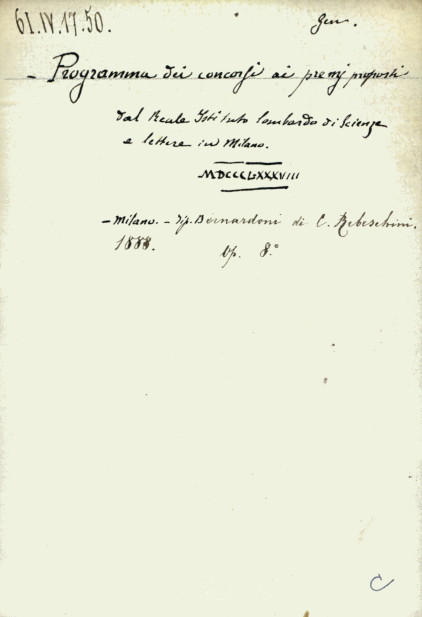 61.IV.17.50.
Gen.
- Programma dei concorsi ai premj proposti
dal Reale Istituto lombardo di Scienze
e lettere in Milano.
MDCCCLXXXVIII
- Milano. - Tip. Bernardoni di C. Rebeschini.
1888. Op. 8.°
C